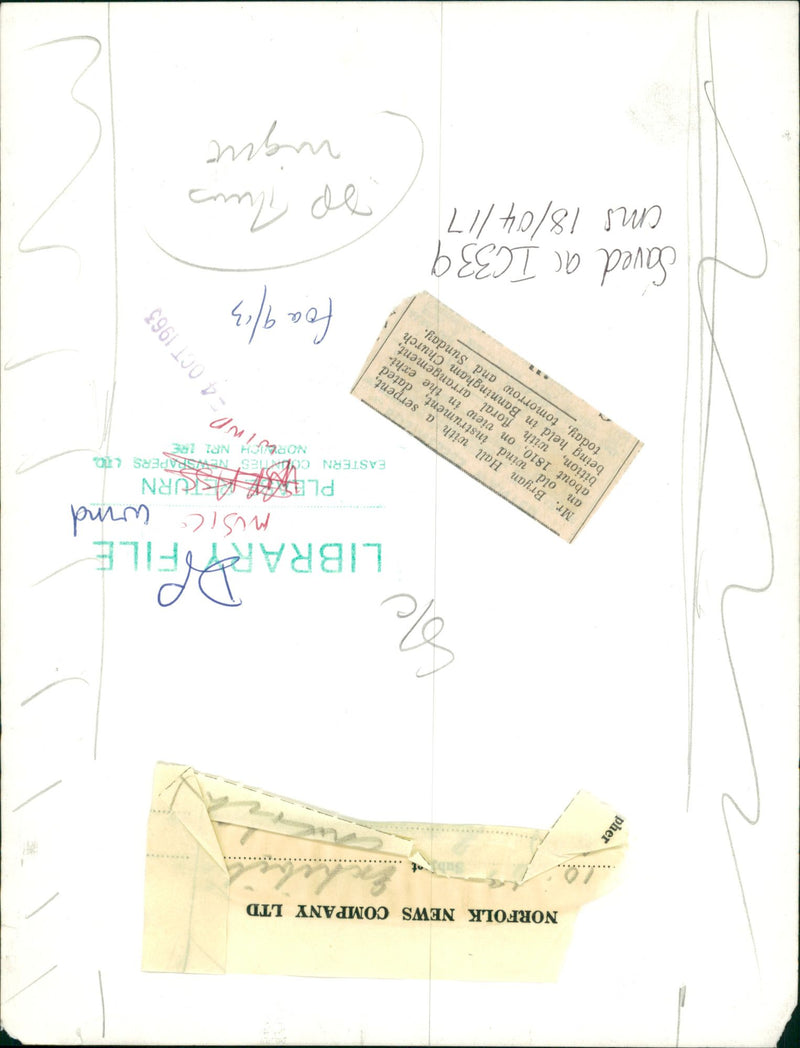 NORFOLK NEWS COMPANY LTD
pher
S/C
DP
LIBRARY FILE
MUSIC
wind
PLEASE RETURN
EASTERN COUNTIES NEWSPAPERS LTD.
NORWICH NR1 1RE
WIND
Mr. Bryan Hall with a serpent
an old wind instrument, dated
about 1810, on view in the exhi-
bition with floral arrangement,
being held in Banningham Church
today, tomorrow and Sunday.
-4 OCT 1963
Saved as IC339
cms 18/04/17
DP Thurs
night